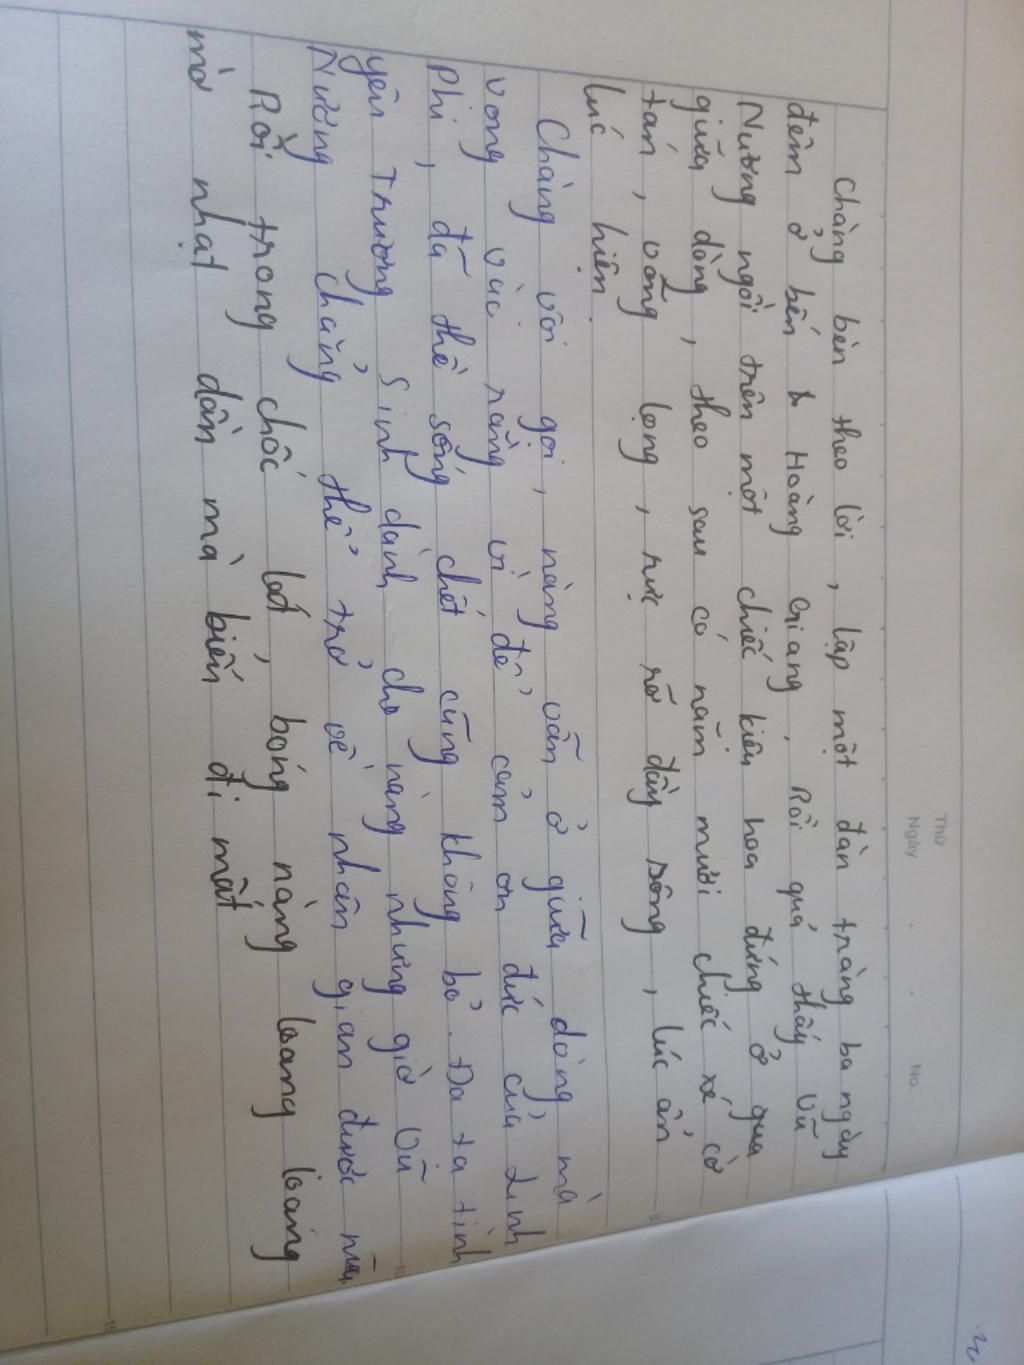 Thứ
Ngày . . No.
Chàng bèn theo lời, lập một đàn tràng ba ngày
đêm ở bến Hoàng Giang. Rồi quả thấy Vũ
Nương ngồi trên một chiếc kiệu hoa đứng ở qua
giữa dòng, theo sau có năm mươi chiếc xe cờ
tán, võng lọng, rực rỡ đầy sông, lúc ẩn
lúc hiện.
Chàng vội gọi, nàng vẫn ở giữa dòng mà
vọng vào rằng vì để cảm ơn đức của Linh
Phi, đã thề sống chết cũng không bỏ. Đa tạ tình
yêu Trương Sinh dành cho nàng nhưng giờ Vũ
Nương chẳng thể trở về nhân gian được nữa.
Rồi trong chốc lát, bóng nàng loang loáng
mờ nhạt dần mà biến đi mất
5
10
15